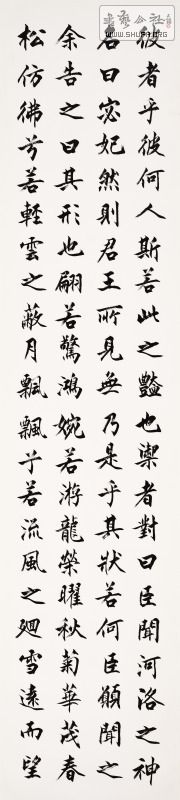 彼者乎彼何人斯若此之豔也禦者對曰臣聞河洛之神
名曰宓妃然則君王所見無乃是乎其狀若何臣願聞之
余告之曰其形也翩若驚鴻婉若游龍榮曜秋菊華茂春
松仿彿兮若輕雲之蔽月飄飄兮若流風之廻雪遠而望